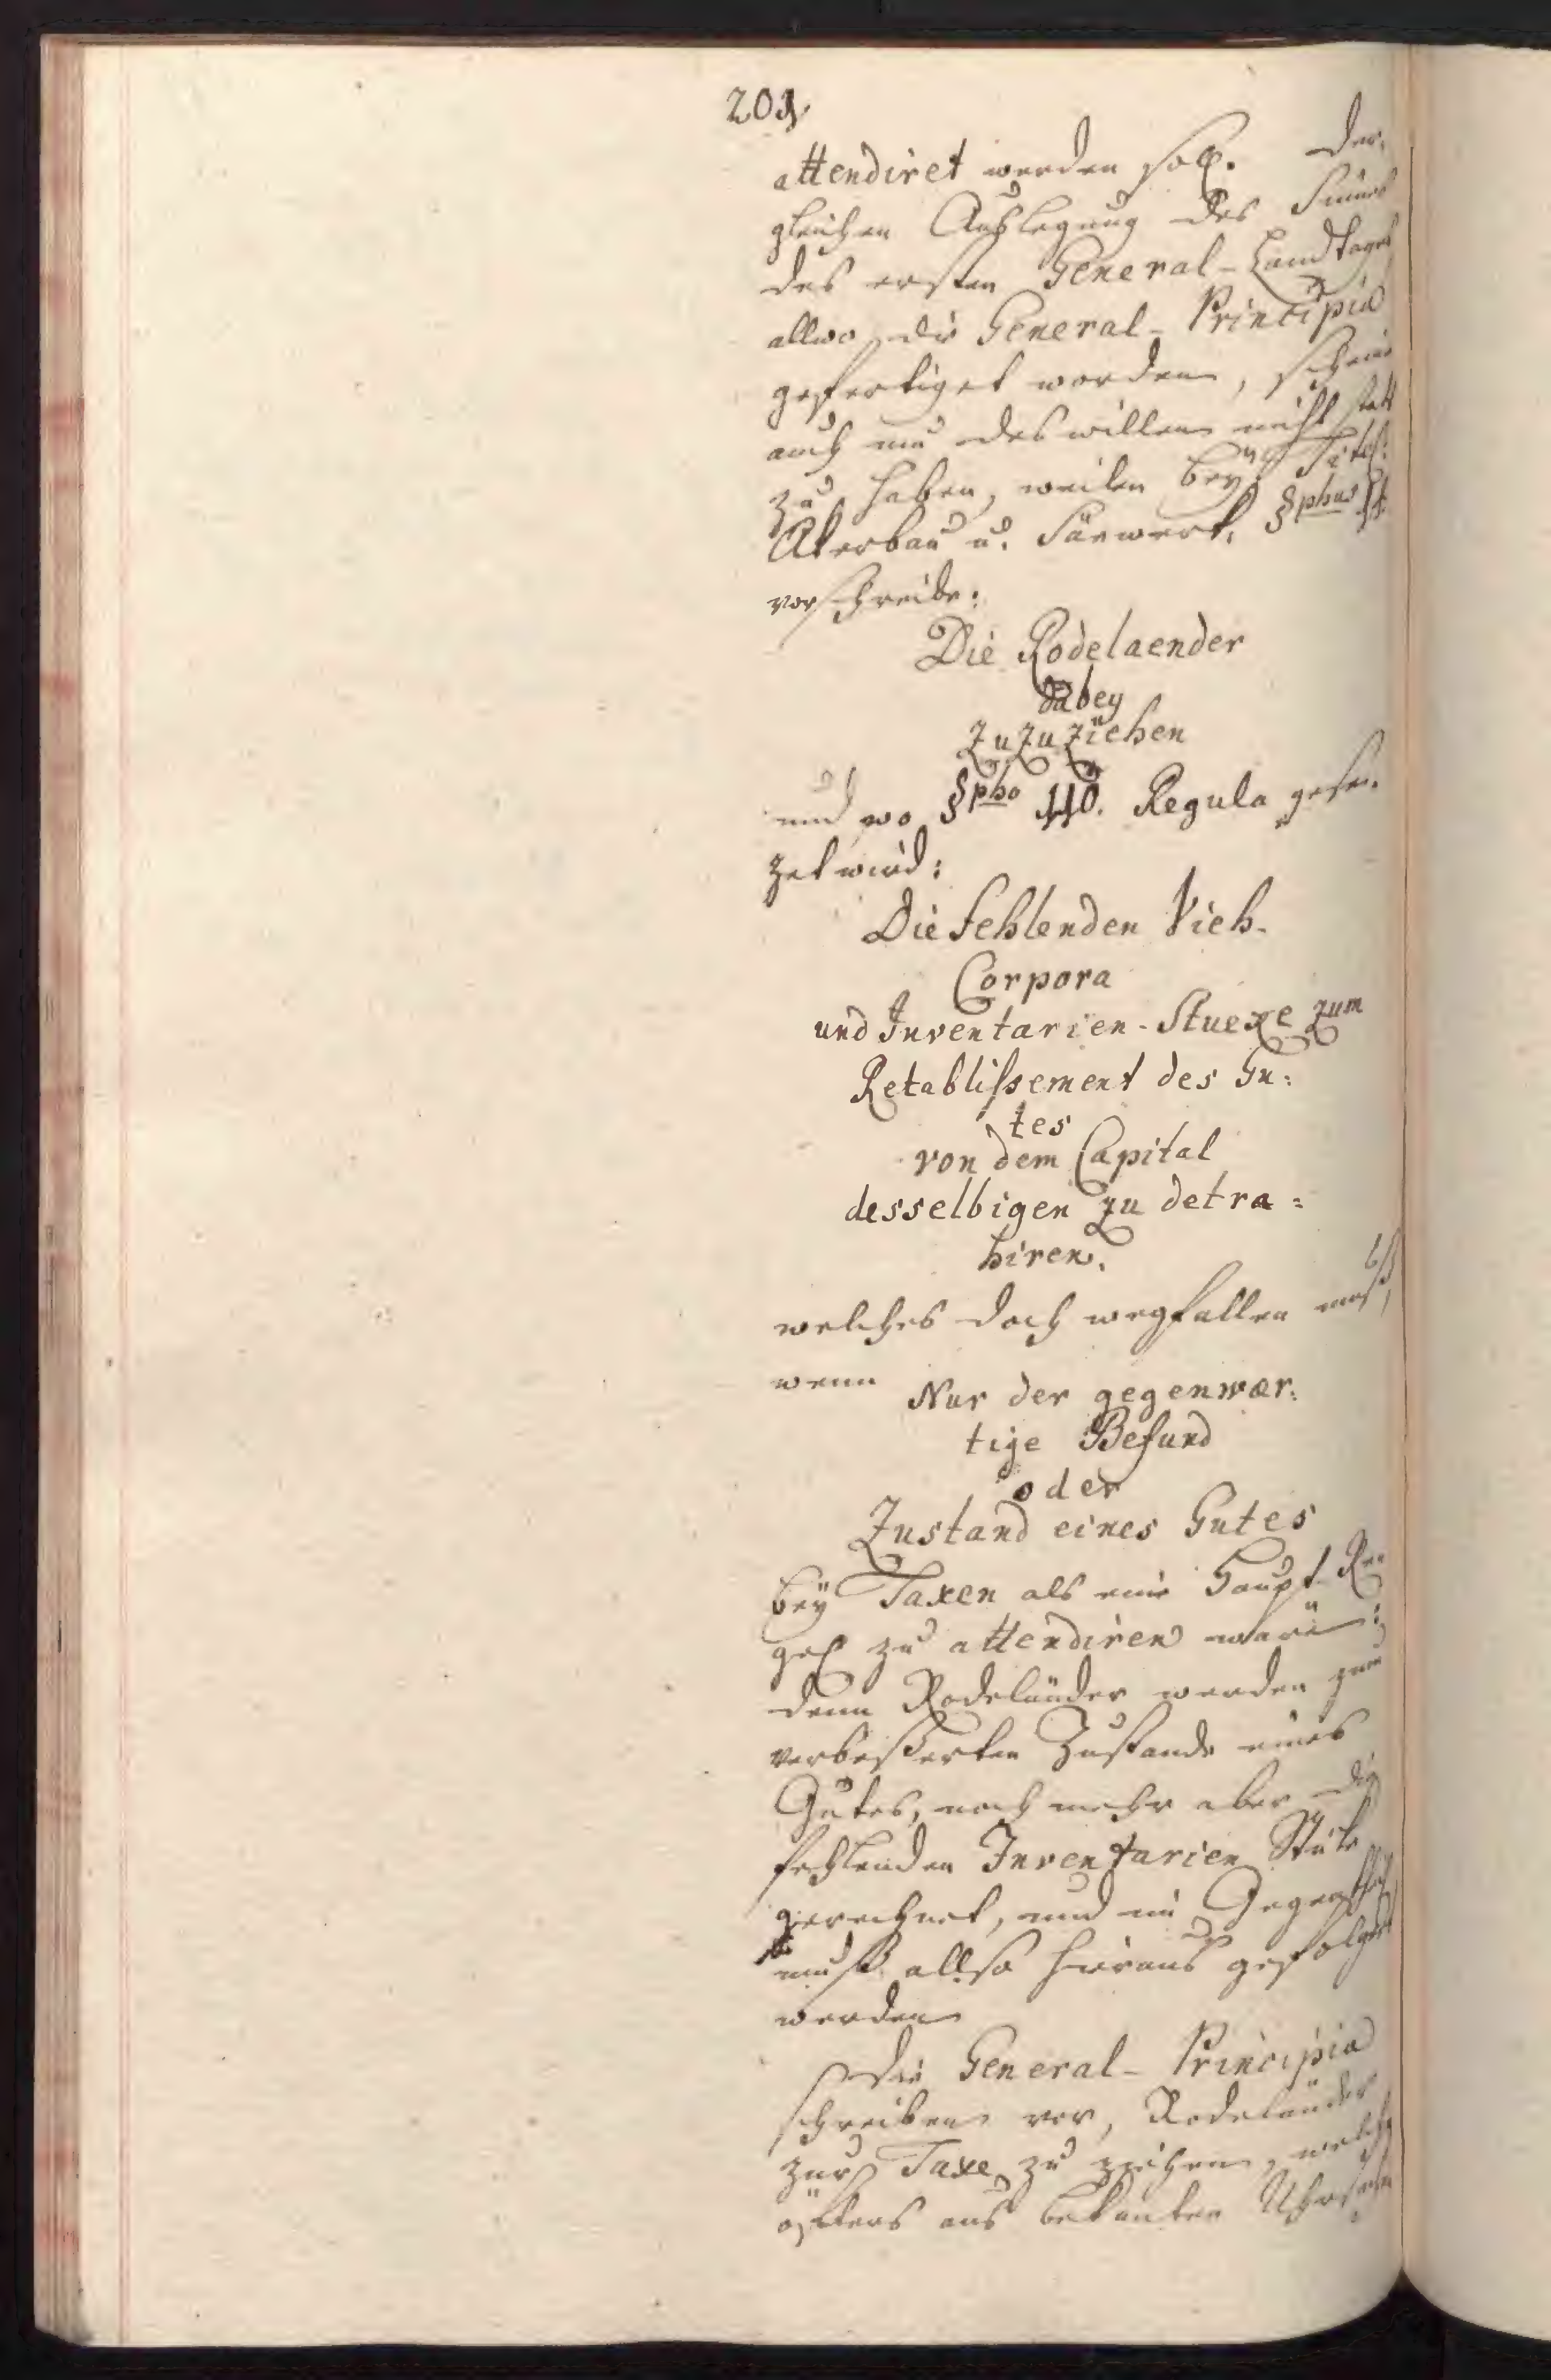 203.
attendiret werden soll. Der-
gleichen Auslegung des Sinnes
des ersten General-Landtages
allwo die General-Principia
gefertiget worden, scheine
auch um deswillen nicht statt
zu haben, weilen bey Titel:
Akerbau u. Säewerk,
vorschreibe:
Die Rodelaender
dabey
zuzuziehen
und wo §pho 110. Regula gese-
zet wird:
Die fehlenden Vieh-
Corpora
und Inventarien-Stueke zum
Retablissement des Gu:
tes
von dem Capital
desselbigen zu detra:
hiren.
welches doch wegfallen muß,
wenn
Nur der gegenwær:
tige Befund
oder
Zustand eines Gutes
bey Taxen als eine Haupt-Re-
gel zu attendiren wäre:
denn Rodeländer werden zum
verbeßerten Zustande eines
Gutes, noch mehr aber die
fehlenden Inventarien Stüke
gerechnet, und im Gegentheil
muß allso hieraus gefolgert
werden
die General-Principia
schreiben vor, Rodeländer
zur Taxe zu ziehen, welche
öfters aus bekanten Uhrsachen